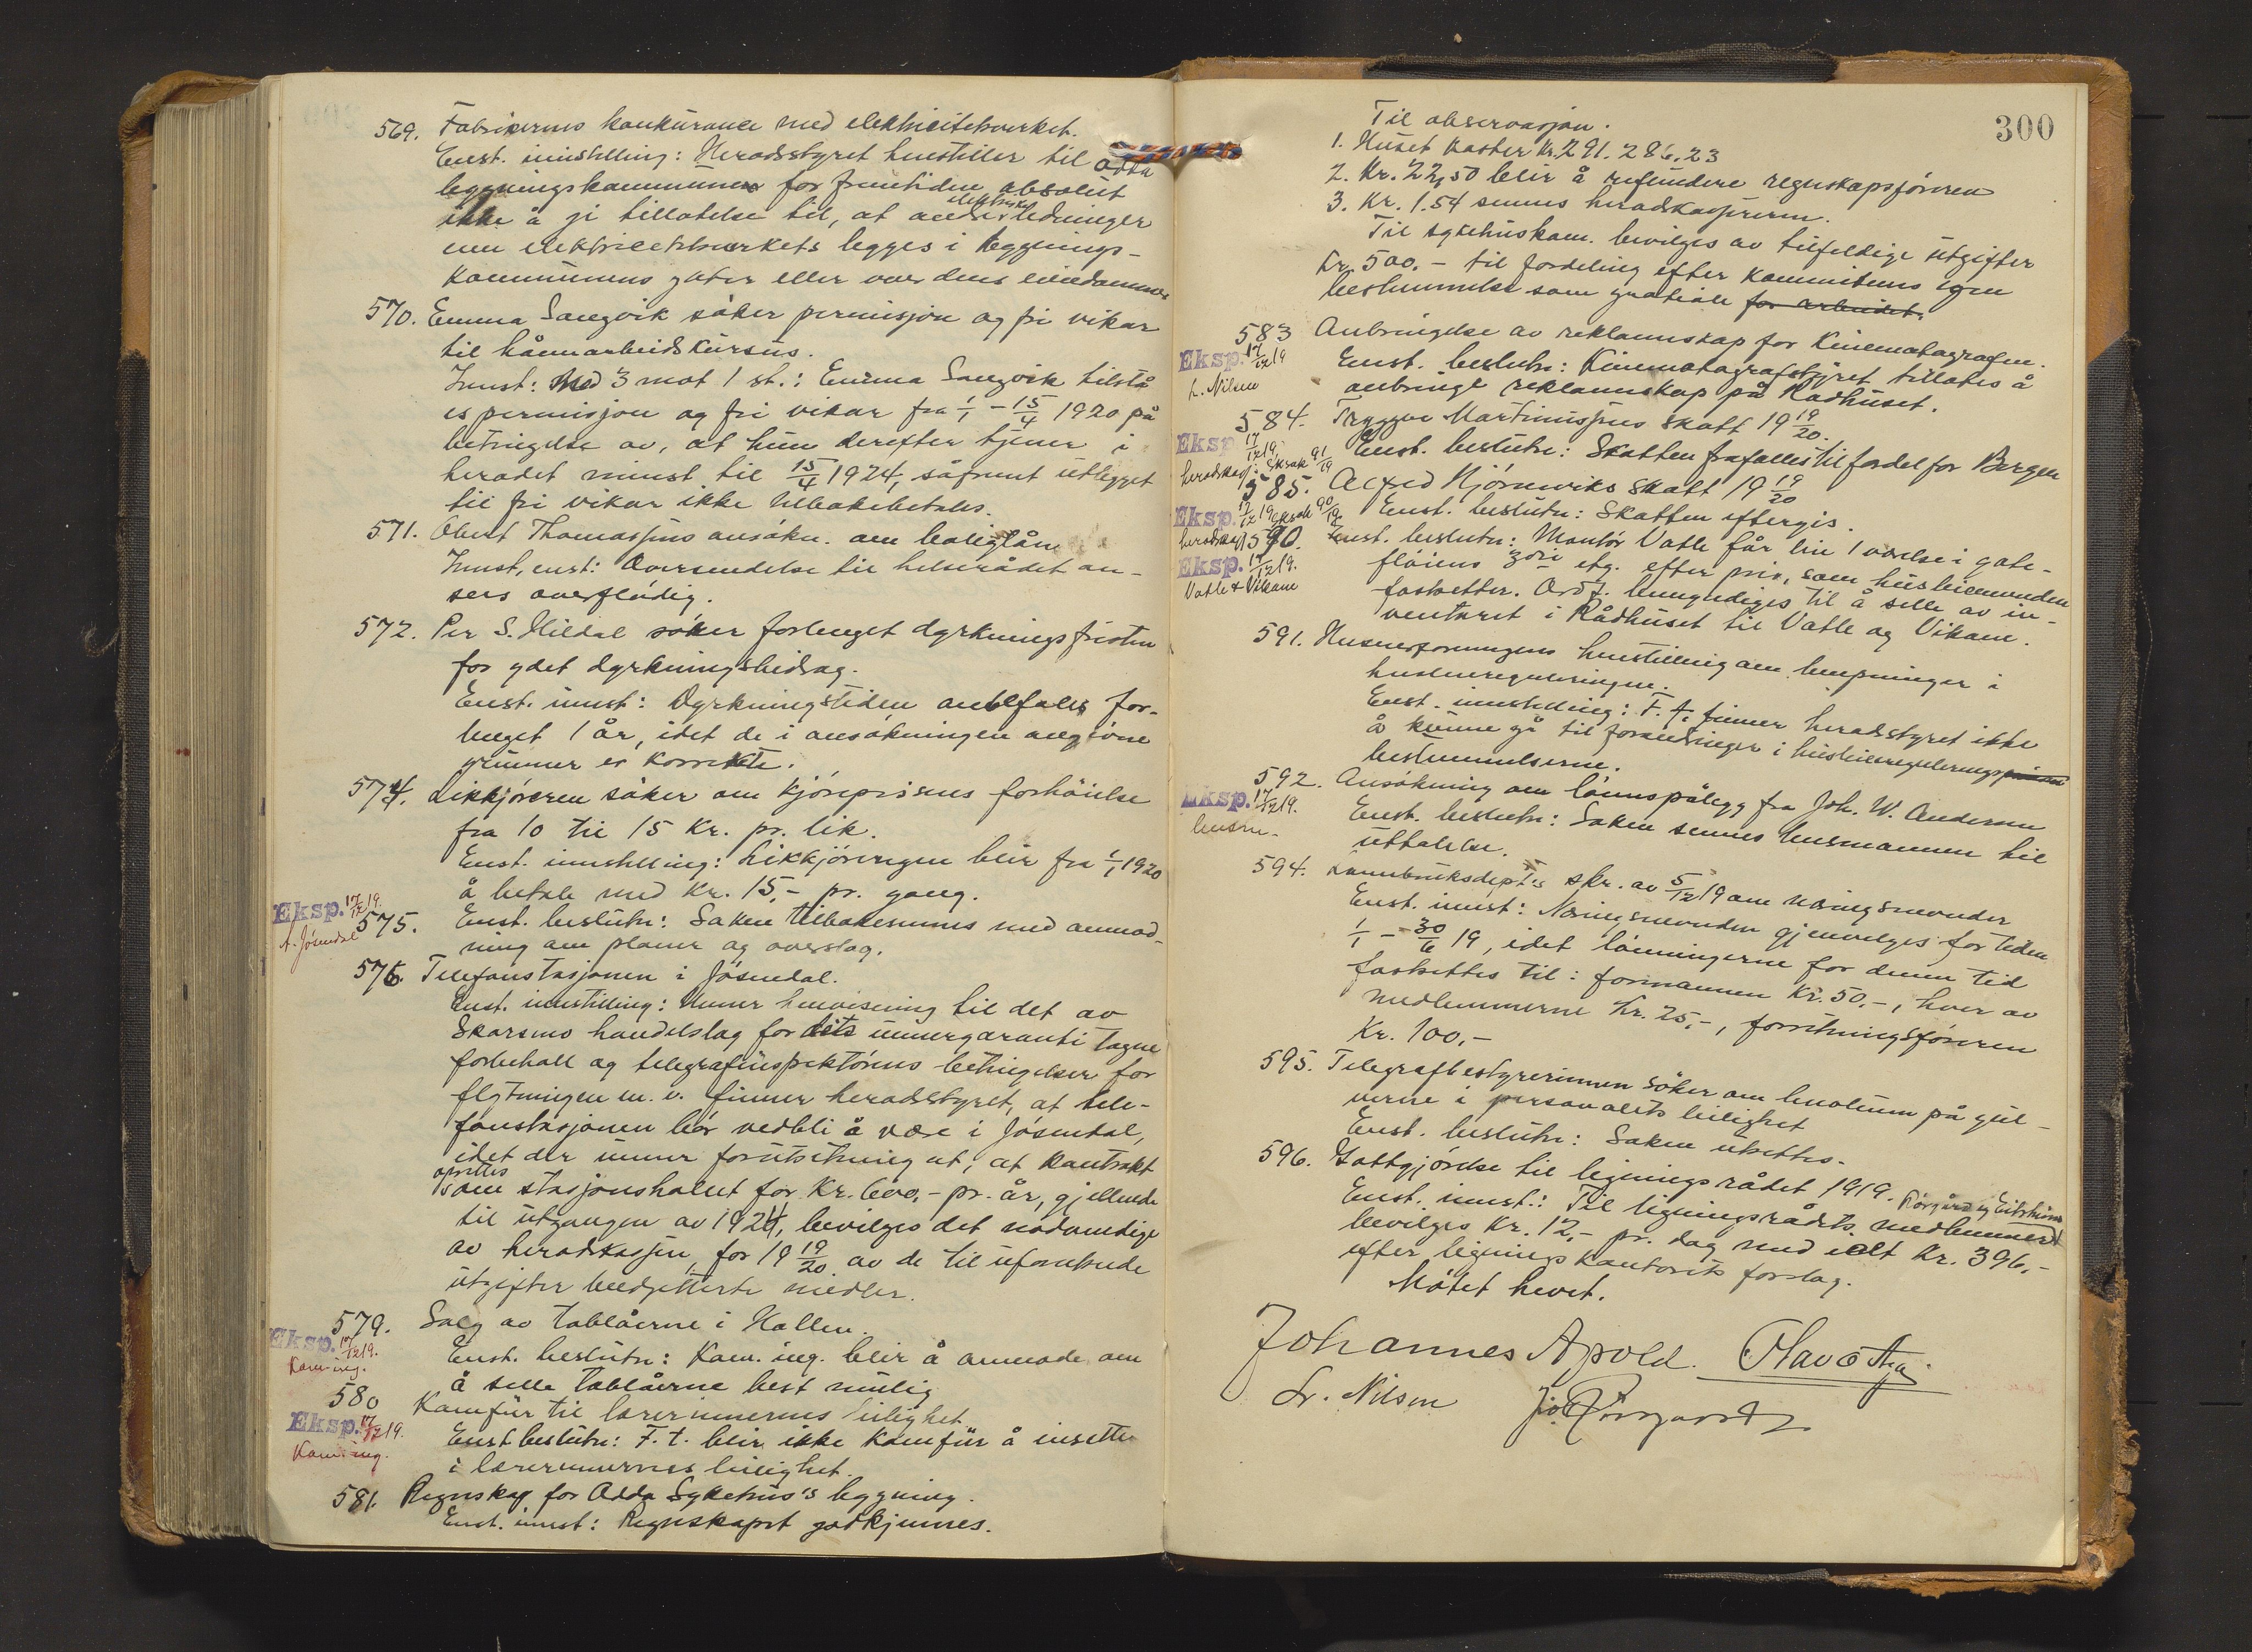 569. Fabrikernes konkurance med elektricitetsverket.
Enst. innstilling: Heradsstyret henstiller til Odda
bygningskommune for fremtiden absolut
ikke å gi tillatelse til, at andre elektriske ledninger
enn elektricitetsverkets legges i bygnings-
kommunens gater eller over dens eiendommer
570. Emma Sangvik søker permisjon og fri vikar
til håndarbeidskursus.
Innst: Med 3 mot 1 st.: Emma Sangvik tilstå
es permisjon og fri vikar fra 1/1 - 15/4 1920 på
betingelse av, at hun derefter tjener i
heradet minst til 15/4 1924, såfremt utlegget
til fri vikar ikke tilbakebetales.
571. Obert Thomassens ansøkn. om boliglån
Innst, enst: Oversendelse til helserådet an-
sees overflødig.
572. Per S. Hildal søker forlenget dyrkningsfristen
for ydet dyrkningsbidrag.
Enst. innst: Dyrkningstiden anbefales for-
lenget 1 år, idet de i ansøkningen angivne
grunner er korrekte.
574. Likkjøreren søker om kjøreprisens forhøielse
fra 10 til 15 kr. pr. lik.
Enst. innstilling: Likkjøringen blir fra 1/1 1920
å betale med kr. 15,- pr. gang.
Eksp. 17/12 19.
A. Jøsendal
575. Enst. beslutn: Saken tilbakesennes med anmod-
ning om planer og overslag.
576. Telefonstasjonen i Jøsendal.
Enst. innstilling: Unner henvisning til det av
Skarsmo handelslag for dets unnergaranti tagne
forbehall og telegrafinspektørens betingelser for
flytningen m. v. finner heradsstyret, at tele-
fonstasjonen bør vedbli å være i Jøsendal,
idet der unner forutsetning at, at kontrakt
oprettes
om stasjonsholdet for kr. 600,- pr. år, gjellende
til utgangen av 1924, bevilges det nødvendige
av heradskassen for 19 19/20 av de til uforutsede
utgifter budgetterte midler.
579. Salg av tablåerne i Hallen.
Eksp. 17/12 19.
Kom. ing.
Enst. beslutn: Kom. ing. blir å anmode om
å selle tablåerne best mulig
580 Komfur til lærerinnernes leilighet
Eksp. 17/12 19.
Kom. ing.
Enst beslutn: F. t. blir ikke komfur å insette
i lærerinnernes leilighet.
581. Regnskap for Odda Sykehus's bygning.
Enst. innst: Regnskapet godkjennes.
300
Til observasjon.
1. Huset koster kr. 291.286.23
2. Kr. 22,50 blir å refundere regnskapsføreren
3. Kr. 1.54 sennes heradskasseren.
Til sykehuskom. bevilges av tilfeldige utgifter
kr. 500.- til fordeling efter komiteens egen
bestemmelse som gratiale for arbeidet.
583 Anbringelse av reklameskap for Kinematografen.
Eksp. 17/12 19
L. Nilsen
Enst. beslutn: Kinematografstyret tillates å
anbringe reklameskap på Rådhuset.
584. Trygve Martinussens skatt 19 19/20.
Eksp 17/12 19.
heradskass. Sksak 91/19
Enst. beslutn: Skatten frafalles til fordel for Bergen
585. Alfred Njørneviks skatt 19 19/20
Eksp. 17/12 19 sksak 90/19
heradskass
Enst. beslutn: Skatten eftergis.
590. Enst. beslutn: Montør Vatle får leie 1 værelse i gate-
Eksp. 17/12 19.
Vatle & Vikane
fløiens 3die etg. efter pris, som husleienemnden
fastsetter. Ordf. bemyndiges til å selle av in-
ventaret i Rådhuset til Vatle og Vikane.
591. Huseierforeningens henstilling om lempninger i
husleiereguleringen.
Enst. innstilling: F. t. finner heradsstyret ikke
å kunne gå til forandringer i husleieregulerings
bestemmelserne.
592. Ansøkning om lønnspålegg fra Joh. W. Andersen
Eksp. 17/12 19.
Enst. beslutn: Saken sennes lensmannen til
uttalelse.
594. Lannbruksdept's skr. av 5/12 19 om næringsnevnder
Enst. innst: Næringsnevnden gjenvelges for tiden
1/1 - 30/6 19, idet lønningerne for denne tid
fastsettes til: formannen kr. 50.-, hver av
medlemmerne kr. 25,-, forretningsføreren
kr. 100,-
595. Telegrafbestyrerinnen søker om linoleum på gul-
verne i personalets leilighet
Enst. beslutn: Saken utsettes.
596. Gottgjørelse til ligningsrådet 1919.
Enst. innst.: Til ligningsrådets medlemmer Borgård og Eitrheim
bevilges kr. 12,- pr. dag med ialt kr. 396,-
efter ligningskontorets forslag.
Møtet hevet.
Johannes Apold. Olav
Lr. Nilsen